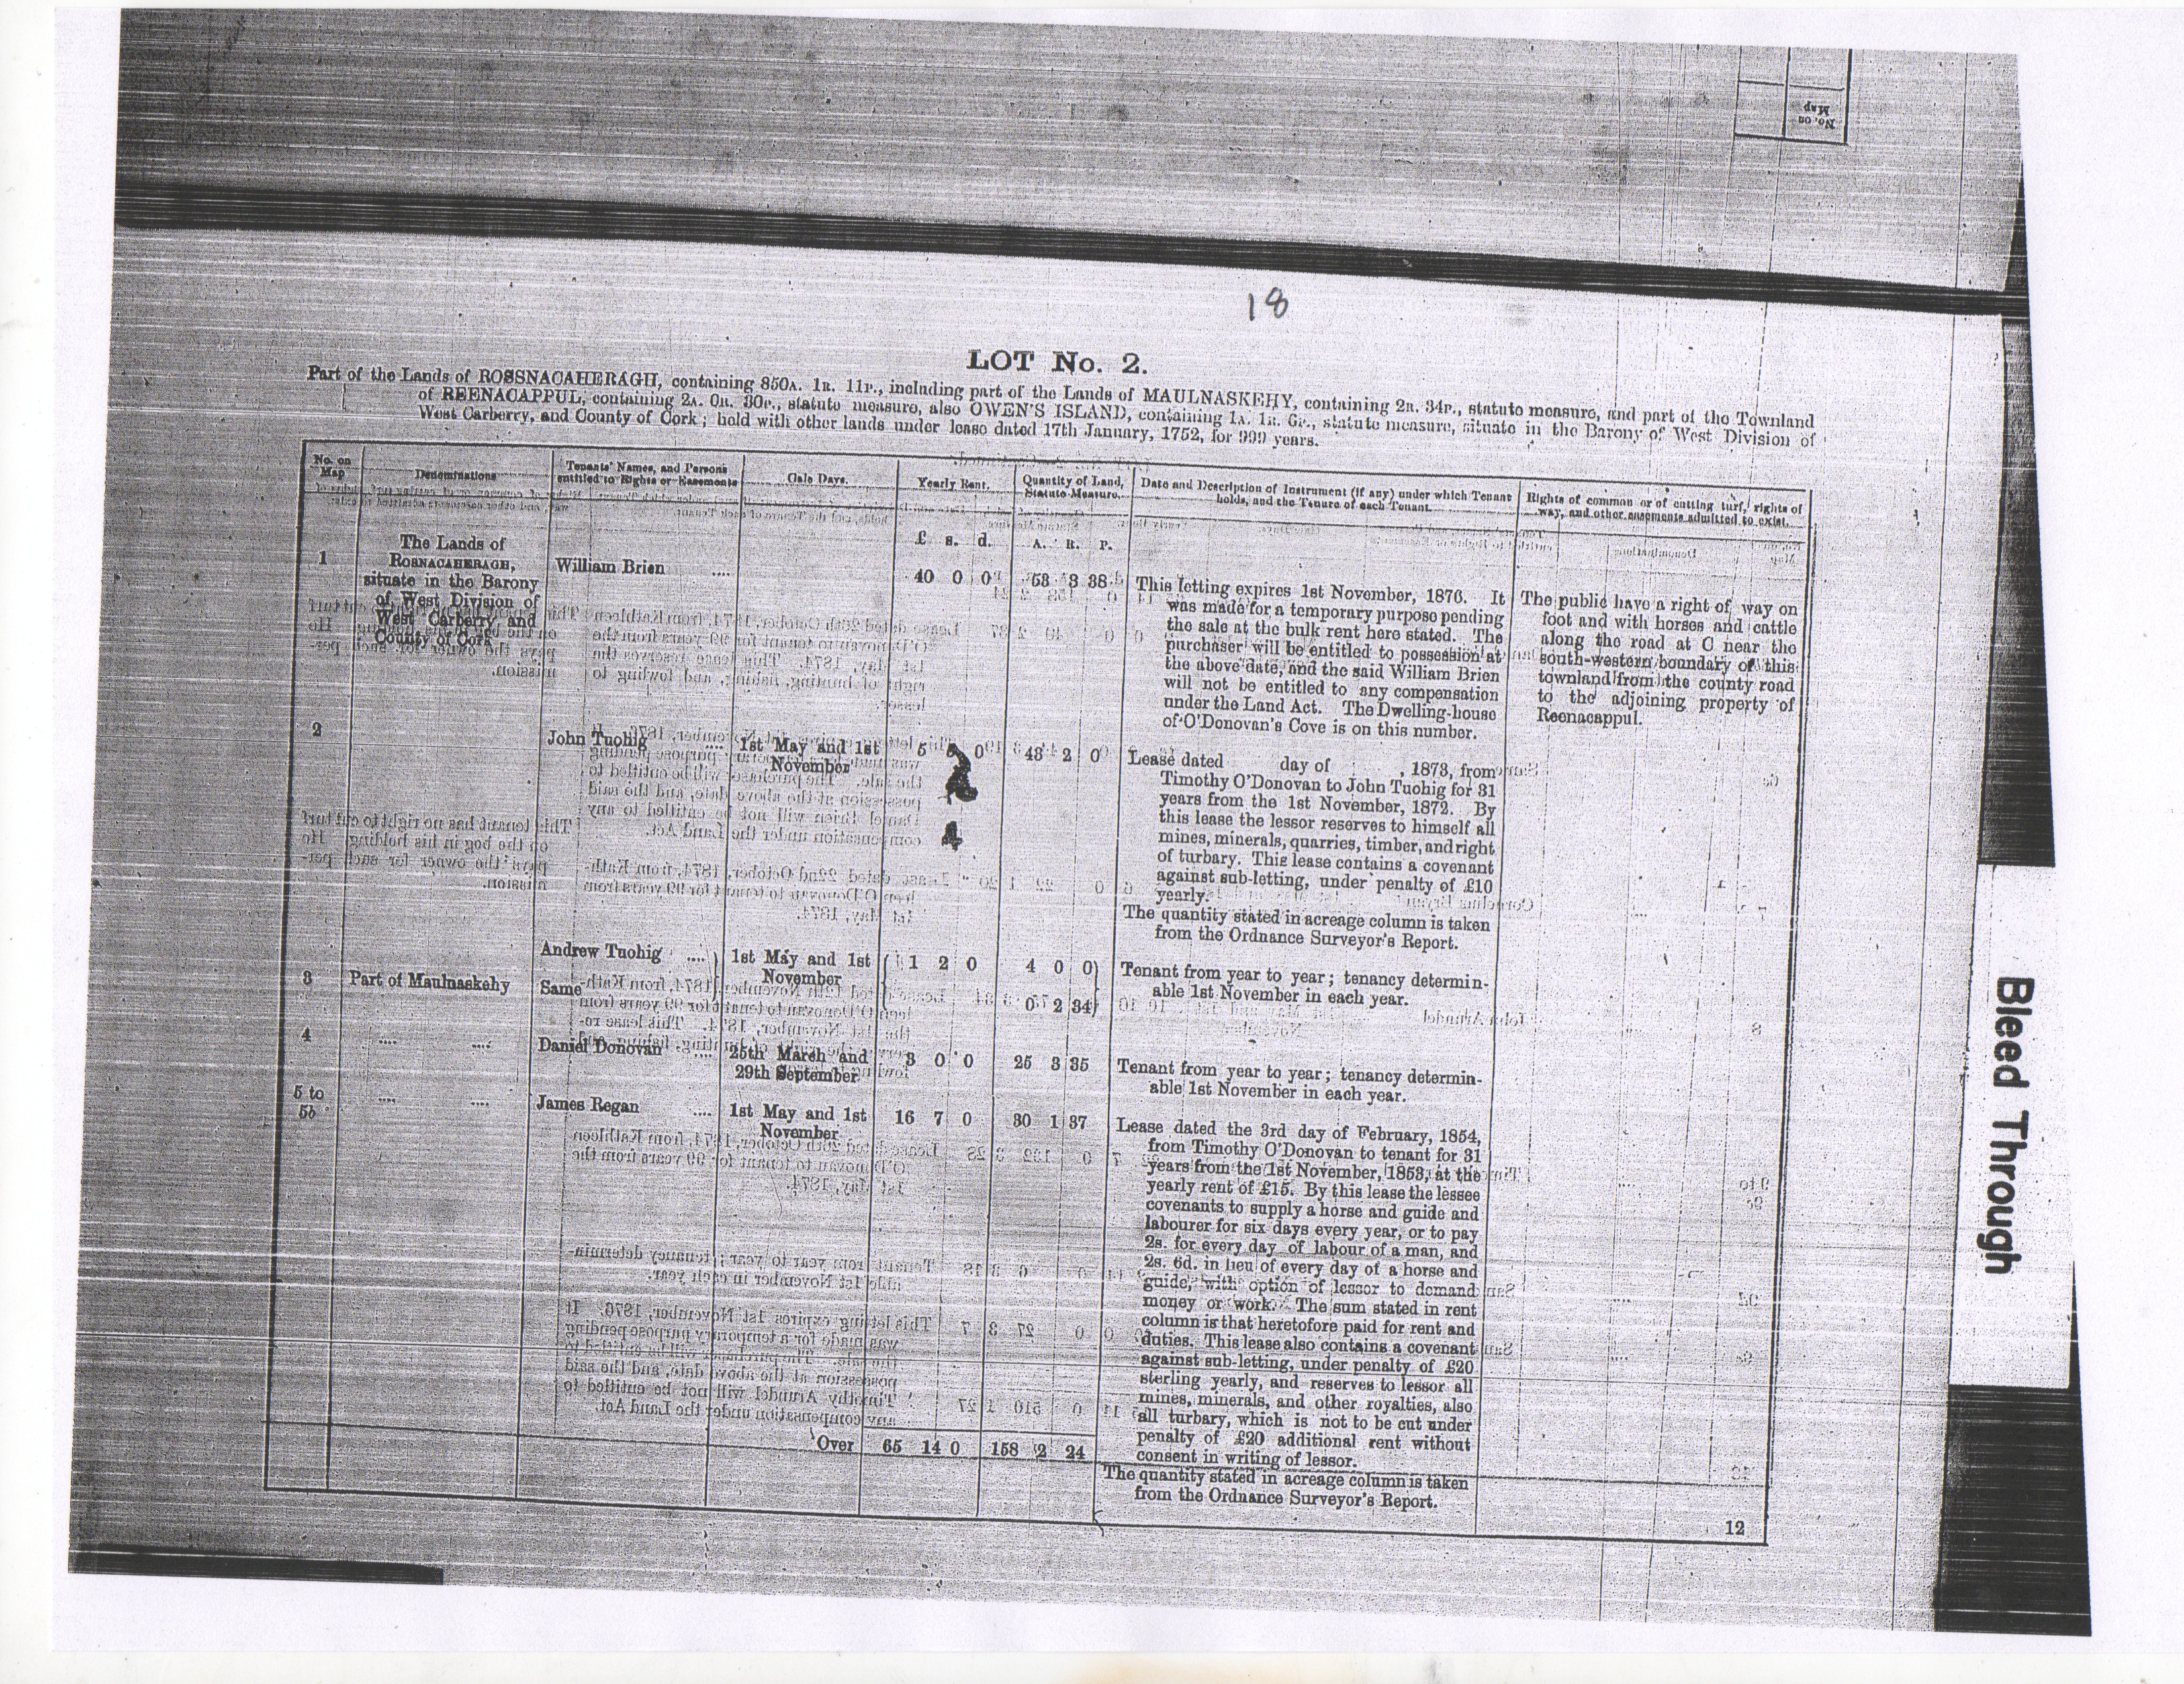 No. on
Map
18
LOT No. 2.
Part of the Lands of ROSSNACAHERAGH, containing 850A. 1R. 11P., including part of the Lands of MAULNASKEHY, containing 2R. 34P., statute measure, and part of the Townland
of REENACAPPUL, containing 2A. 0R. 30P., statute measure, also OWEN'S ISLAND, containing 1A. 1R. 6P., statute measure, situate in the Barony of West Division of
West Carberry, and County of Cork; held with other lands under lease dated 17th January, 1752, for 999 years.
No. on Map | Denominations | Tenants' Names, and Persons entitled to Rights or Easements | Gale Days. | Yearly Rent. | Quantity of Land, Statute Measure. | Date and Description of Instrument (if any) under which Tenant holds, and the Tenure of each Tenant. | Rights of common or of cutting turf, rights of way, and other easements admitted to exist.
£ s. d. A. R. P.
1 The Lands of
ROSNACAHERAGH,
situate in the Barony
of West Division of
West Carberry and
County of Cork
William Brien .... 40 0 0 53 3 38
This letting expires 1st November, 1876. It
was made for a temporary purpose pending
the sale at the bulk rent here stated. The
purchaser will be entitled to possession at
the above date, and the said William Brien
will not be entitled to any compensation
under the Land Act. The Dwelling-house
of O'Donovan's Cove is on this number.
The public have a right of way on
foot and with horses and cattle
along the road at C near the
south-western boundary of this
townland from the county road
to the adjoining property of
Reenacappul.
2 John Tuohig .... 1st May and 1st
November
5 5 0 43 2 0
4
Lease dated day of , 1873, from
Timothy O'Donovan to John Tuohig for 31
years from the 1st November, 1872. By
this lease the lessor reserves to himself all
mines, minerals, quarries, timber, and right
of turbary. This lease contains a covenant
against sub-letting, under penalty of £10
yearly.
The quantity stated in acreage column is taken
from the Ordnance Surveyor's Report.
Andrew Tuohig .... 1st May and 1st
November
1 2 0 4 0 0
Tenant from year to year; tenancy determin-
able 1st November in each year.
3 Part of Maulnaskehy Same 0 2 34
4 .... .... Daniel Donovan .... 25th March and
29th September
3 0 0 25 3 35
Tenant from year to year; tenancy determin-
able 1st November in each year.
5 to
5b
.... .... James Regan .... 1st May and 1st
November
16 7 0 30 1 37
Lease dated the 3rd day of February, 1854,
from Timothy O'Donovan to tenant for 31
years from the 1st November, 1853, at the
yearly rent of £15. By this lease the lessee
covenants to supply a horse and guide and
labourer for six days every year, or to pay
2s. for every day of labour of a man, and
2s. 6d. in lieu of every day of a horse and
guide, with option of lessor to demand
money or work. The sum stated in rent
column is that heretofore paid for rent and
duties. This lease also contains a covenant
against sub-letting, under penalty of £20
sterling yearly, and reserves to lessor all
mines, minerals, and other royalties, also
all turbary, which is not to be cut under
penalty of £20 additional rent without
consent in writing of lessor.
The quantity stated in acreage column is taken
from the Ordnance Surveyor's Report.
Over 65 14 0 158 2 24
12
Bleed Through